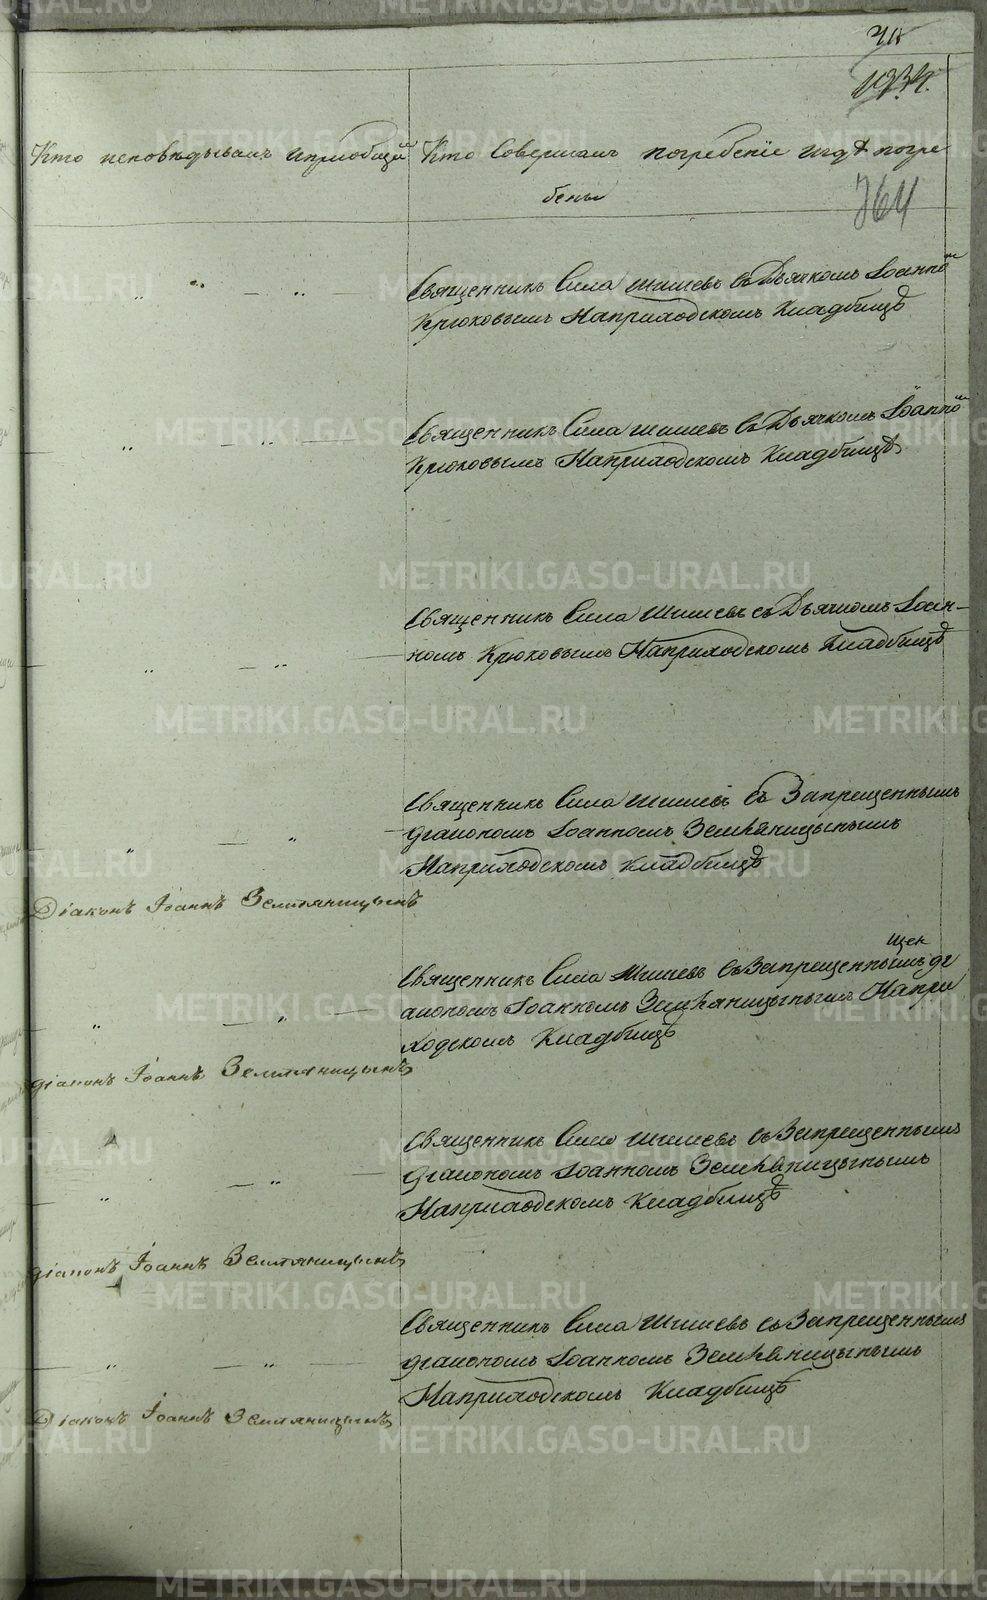 Кто исповѣдывалъ и приобщилъ
Кто Совершалъ погребенiе и гдѣ погре
бены
764
Священникъ Сила Шишевъ съ Дьячкомъ Iоанно
Крюковымъ На приходскомъ Кладбищѣ
Священникъ Сила Шишевъ съ Дьячкомъ Iоанно
Крюковымъ На приходскомъ Кладбищѣ
Священникъ Сила Шишевъ съ Дьячкомъ Iоан-
номъ Крюковымъ На приходскомъ Кладбищѣ
Священникъ Сила Шишевъ съ Запрещеннымъ
дiакономъ Iоанномъ Земляницынымъ
На приходскомъ Кладбищѣ
Дiаконъ Iоаннъ Земляницынъ
Священникъ Сила Шишевъ съ Запрещеннымъ дi
акономъ Iоанномъ Земляницынымъ На при
ходскомъ Кладбищѣ
дiаконъ Iоаннъ Земляницынъ
Священникъ Сила Шишевъ съ Запрещеннымъ
дiакономъ Iоанномъ Земляницынымъ
На приходскомъ Кладбищѣ
дiаконъ Iоаннъ Земляницынъ
Священникъ Сила Шишевъ съ Запрещеннымъ
дiакономъ Iоанномъ Земляницынымъ
На приходскомъ Кладбищѣ
Дiаконъ Iоаннъ Земляницынъ
METRIKI.GASO-URAL.RU